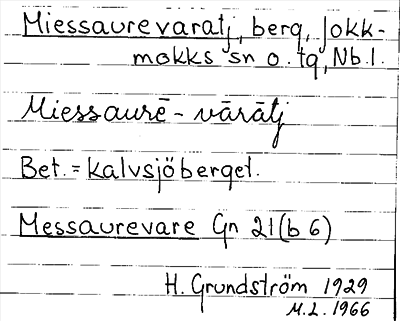 Miessaurevaratj, berg, Jokk-
mokks sn o. tg, Nb.l.
Miessaurē - vārātj
Bet. = kalvsjöberget.
Messaurevare Gn 21(b 6)
H. Grundström 1929
M.L. 1966